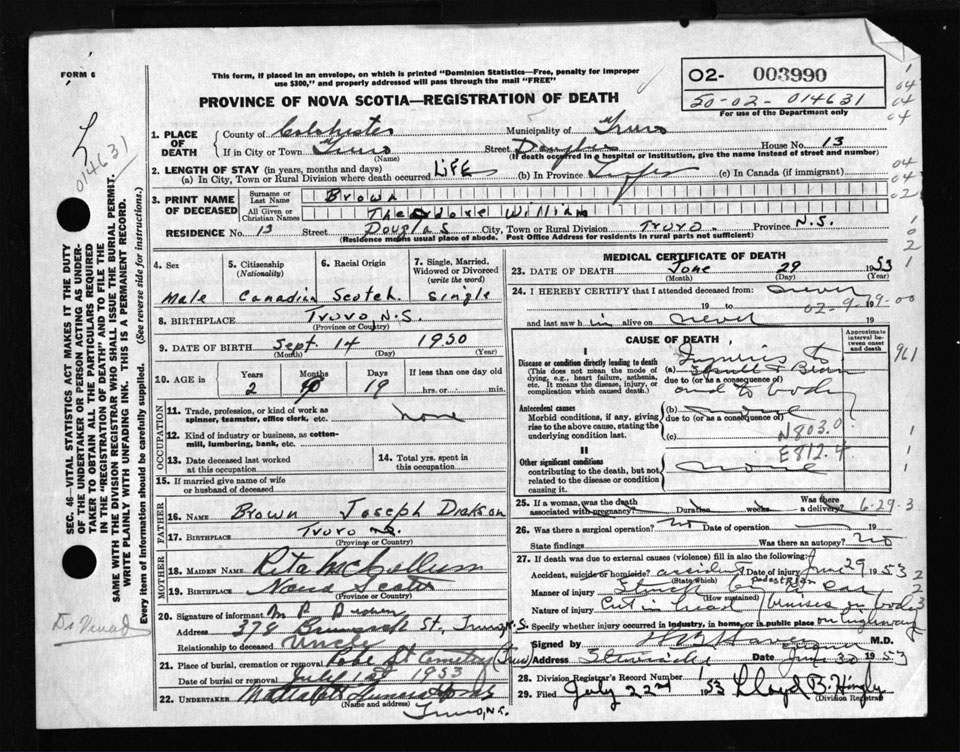 FORM 6
This form, if placed in an envelope, on which is printed "Dominion Statistics—Free, penalty for improper
use $300," and properly addressed will pass through the mail "FREE"
PROVINCE OF NOVA SCOTIA—REGISTRATION OF DEATH
02- 003990
50-02-014631
For use of the Department only
014631
SEC. 46—VITAL STATISTICS ACT MAKES IT THE DUTY
OF THE UNDERTAKER OR PERSON ACTING AS UNDER-
TAKER TO OBTAIN ALL THE PARTICULARS REQUIRED
IN THE "REGISTRATION OF DEATH" AND TO FILE THE
SAME WITH THE DIVISION REGISTRAR WHO SHALL ISSUE THE BURIAL PERMIT.
WRITE PLAINLY WITH UNFADING INK. THIS IS A PERMANENT RECORD.
Every item of Information should be carefully supplied. (See reverse side for instructions.)
1. PLACE OF DEATH County of Colchester Municipality of Truro
If in City or Town Truro (Name) Street Douglas House No. 13
(If death occurred in a hospital or institution, give the name instead of street and number)
2. LENGTH OF STAY (in years, months and days)
(a) In City, Town or Rural Division where death occurred LIFE (b) In Province Life (c) In Canada (if immigrant)
3. PRINT NAME OF DECEASED Surname or Last Name Brown
All Given or Christian Names Theodore William
RESIDENCE No. 13 Street Douglas City, Town or Rural Division Truro. Province N.S.
(Residence means usual place of abode. Post Office Address for residents in rural parts not sufficient)
4. Sex 5. Citizenship (Nationality) 6. Racial Origin 7. Single, Married, Widowed or Divorced (write the word)
Male Canadian Scotch Single
8. BIRTHPLACE Truro N.S.
(Province or Country)
9. DATE OF BIRTH Sept 14 1950
(Month) (Day) (Year)
10. AGE in Years Months Days If less than one day old
2 9 19 hrs. or min.
OCCUPATION
11. Trade, profession, or kind of work as
spinner, teamster, office clerk, etc. none
12. Kind of industry or business, as cotton-
mill, lumbering, bank, etc.
13. Date deceased last worked
at this occupation
14. Total yrs. spent in
this occupation
15. If married give name of wife
or husband of deceased
FATHER
16. NAME Brown Joseph Dickson
17. BIRTHPLACE Truro N.S.
(Province or Country)
MOTHER
18. MAIDEN NAME Rita McCallum
19. BIRTHPLACE Nova Scotia
(Province or Country)
20. Signature of informant M P Brown
Address 378 St, Truro, N.S.
Relationship to deceased Uncle
21. Place of burial, cremation or removal (Truro)
Date of burial or removal July 1st 1953
22. UNDERTAKER
(Name and address)
Truro, N.S.
MEDICAL CERTIFICATE OF DEATH
23. DATE OF DEATH June 29 1953
(Month) (Day) (Year)
24. I HEREBY CERTIFY that I attended deceased from never
19 to 19
and last saw him alive on never 19
CAUSE OF DEATH
Approximate interval between onset and death
I
Disease or condition directly leading to death
(This does not mean the mode of
dying, e.g., heart failure, asthenia,
etc. It means the disease, injury, or
complication which caused death.)
(a) Injuries to
Skull & Brain
due to (or as a consequence of)
and to body
Antecedent causes
Morbid conditions, if any, giving
rise to the above cause, stating the
underlying condition last.
(b) none
due to (or as a consequence of)
(c) N803.0
E812.4
II
Other significant conditions
contributing to the death, but not
related to the disease or condition
causing it.
none
25. If a woman, was the death
associated with pregnancy? Duration weeks Was there a delivery? 6-29-3
26. Was there a surgical operation? no Date of operation 19
State findings Was there an autopsy? no
27. If death was due to external causes (violence) fill in also the following:
Accident, suicide or homicide? accident Date of injury June 29 1953
(State which) Pedestrian
Manner of injury Struck by car
(How sustained)
Nature of injury Cut in head / bruises on body
Specify whether injury occurred in industry, in home, or in public place on highway
Signed by M.D.
Address Date June 30 1953
28. Division Registrar's Record Number
29. Filed July 22nd 1953 Lloyd B.
(Division Registrar)